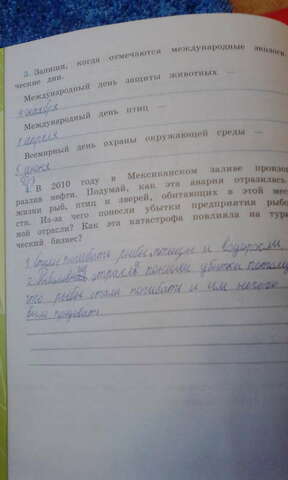 3. Запиши, когда отмечаются международные эколог
ческие дни.
Международный день защиты животных —
4 октября
Международный день птиц —
1 апреля
Всемирный день охраны окружающей среды —
5 июня
4. В 2010 году в Мексиканском заливе произош
разлив нефти. Подумай, как эта авария отразилась
жизни рыб, птиц и зверей, обитающих в этой мес
сти. Из-за чего понесли убытки предприятия рыбо
ной отрасли? Как эта катастрофа повлияла на тури
ческий бизнес?
1. стали погибать рыбы, птицы и водоросли.
2. отрасль понесли убытки потому
что рыбы стали погибать и им нечего
было продавать.